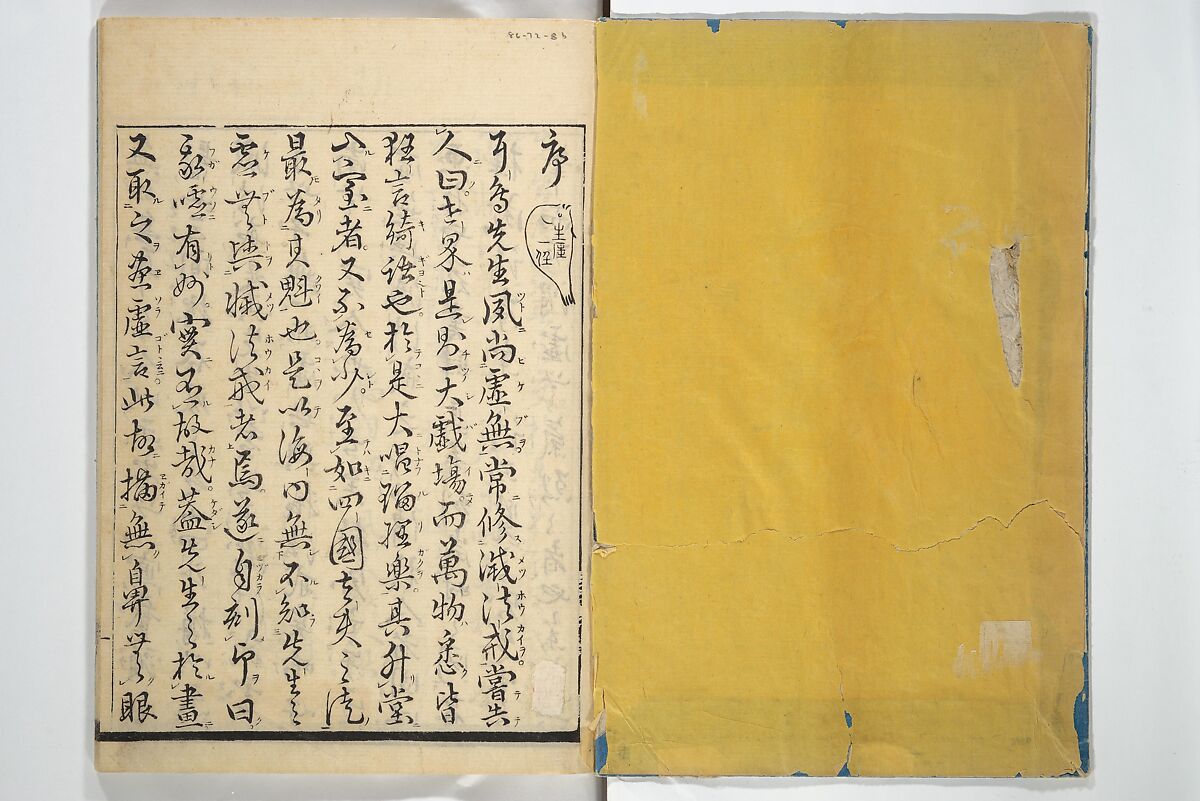 序
生涯一怪
耳鳥先生夙尚虚無常修滅法戒嘗告
人曰世界是則一大戯場而萬物悉皆
狂言綺語也於是大唱瑠理樂其升堂
入室者又不為少至如四國太夫之徒
最為其魁也是以海内無不知先生之
虚無與滅法戒者焉遂自刻印曰
嘘有妙實不故哉蓋先生之於畫
又取之畫虚言此故描無鼻無眼
86-72-83